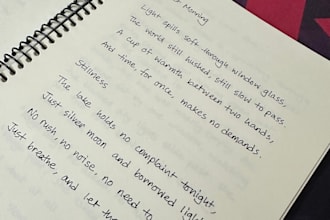 Morning
Light spills soft through window glass,
The world still hushed, still slow to pass.
A cup of warmth between two hands,
And time, for once, makes no demands.
Stillness
The lake holds no complaint tonight,
Just silver moon and borrowed light
No rush, no noise, no need to
Just breathe, and let the